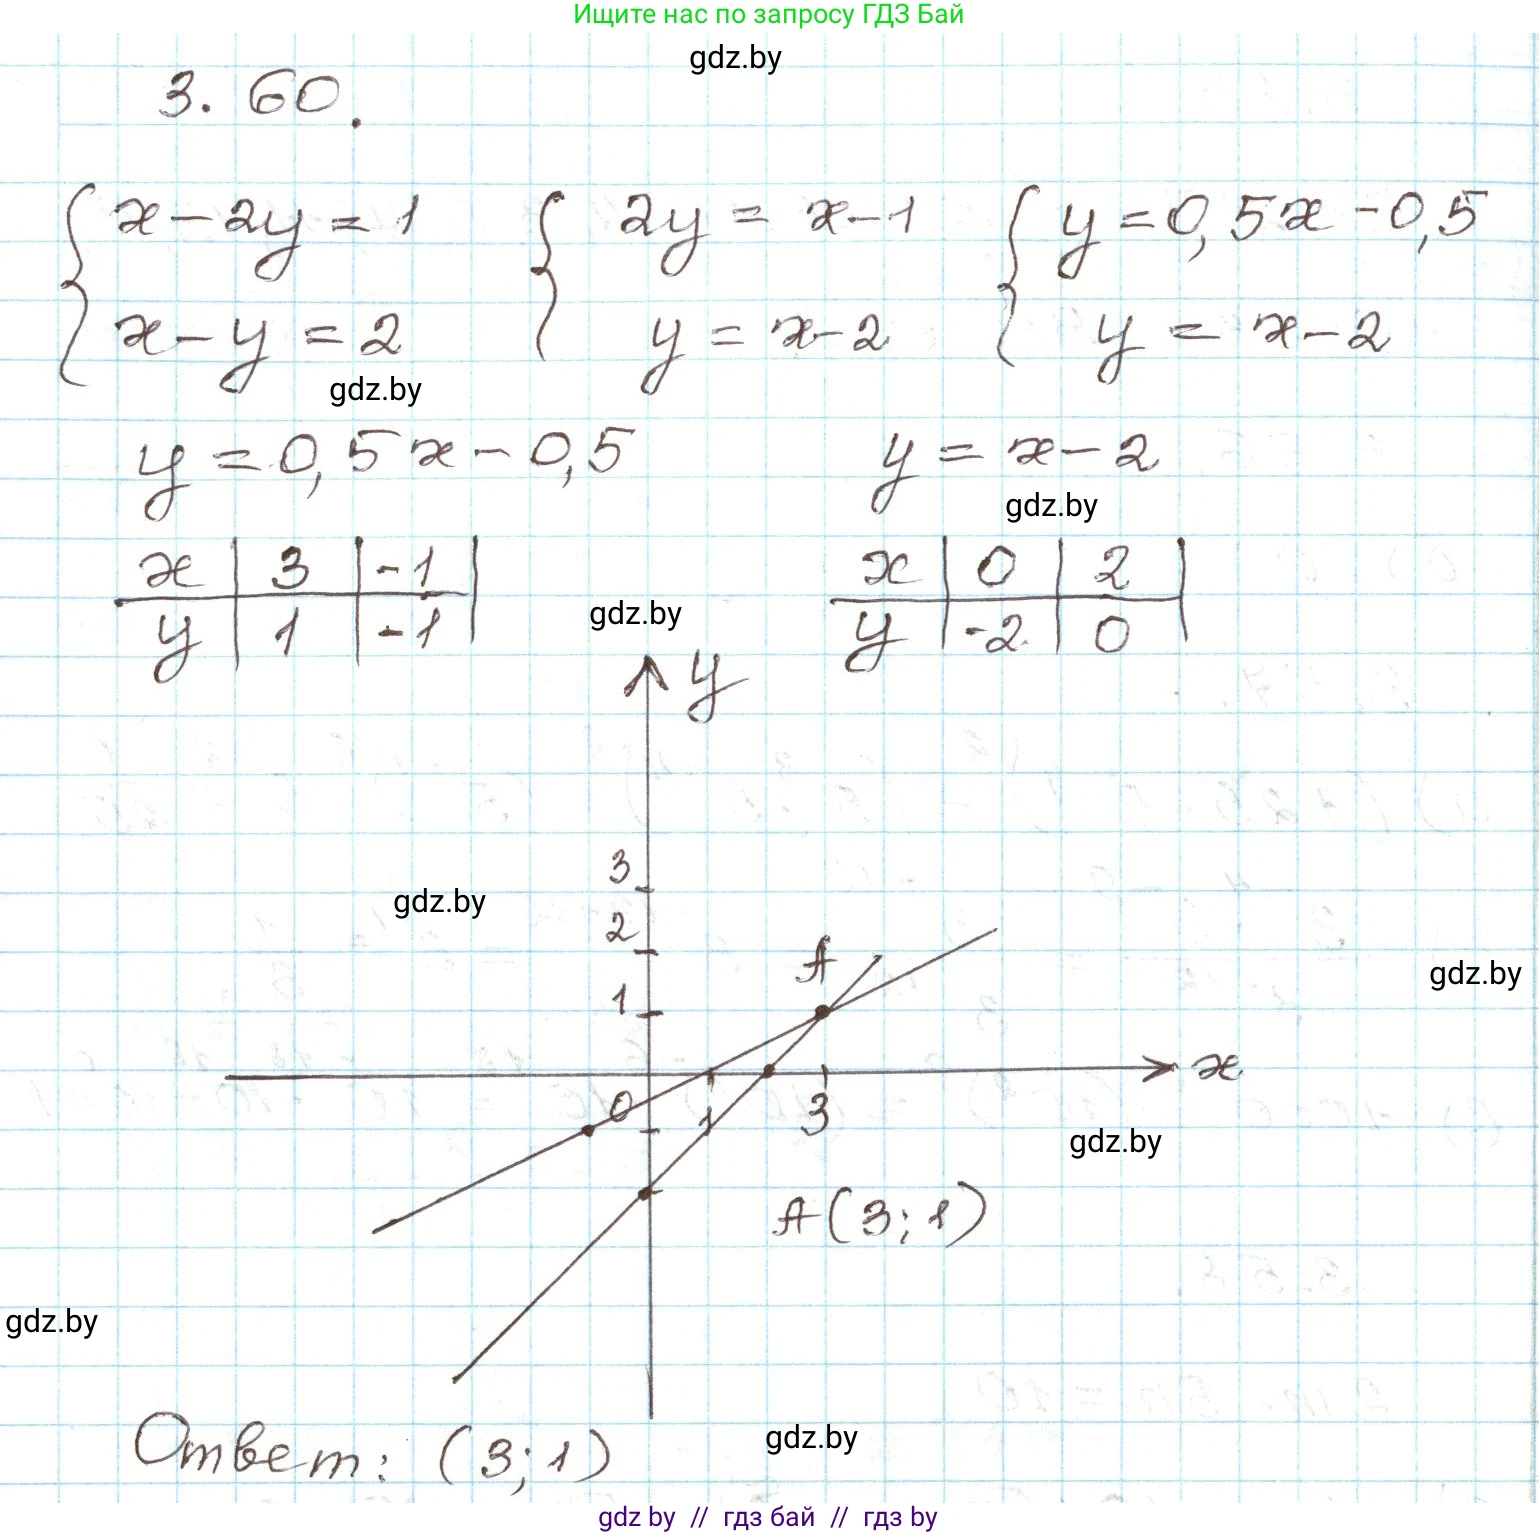 Ищите нас по запросу ГДЗ Бай
gdz.by
3. 60.
{ x-2y=1 { 2y = x-1 { y=0,5x-0,5
x-y=2 y=x-2 y = x-2
gdz.by
y=0,5x-0,5 y=x-2
gdz.by
x | 3 | -1 | x | 0 | 2 |
gdz.by
y | 1 | -1 | y | -2 | 0 |
y
3
gdz.by
2
A
gdz.by
1
x
0 1 3
gdz.by
A(3;1)
gdz.by
Ответ: (3;1)
gdz.by
gdz by // гдз бай // гдз by